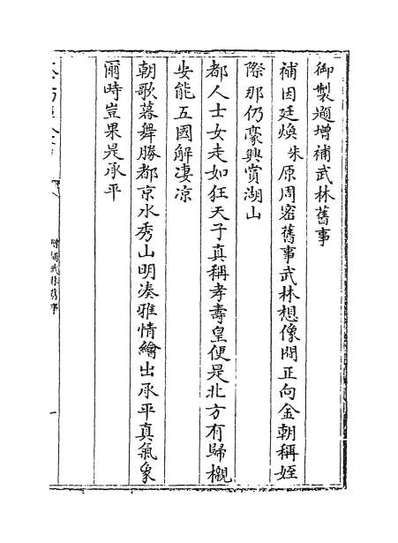 御製題增補武林舊事
補因廷煥朱原周密舊事武林想像間正向金朝稱姪
際那仍豪興賞湖山
都人士女走如狂天子真稱孝壽皇便是北方有歸櫬
安能五國解凄凉
朝歌暮舞勝都京水秀山明湊雅情繪出承平真氣象
爾時豈果是承平